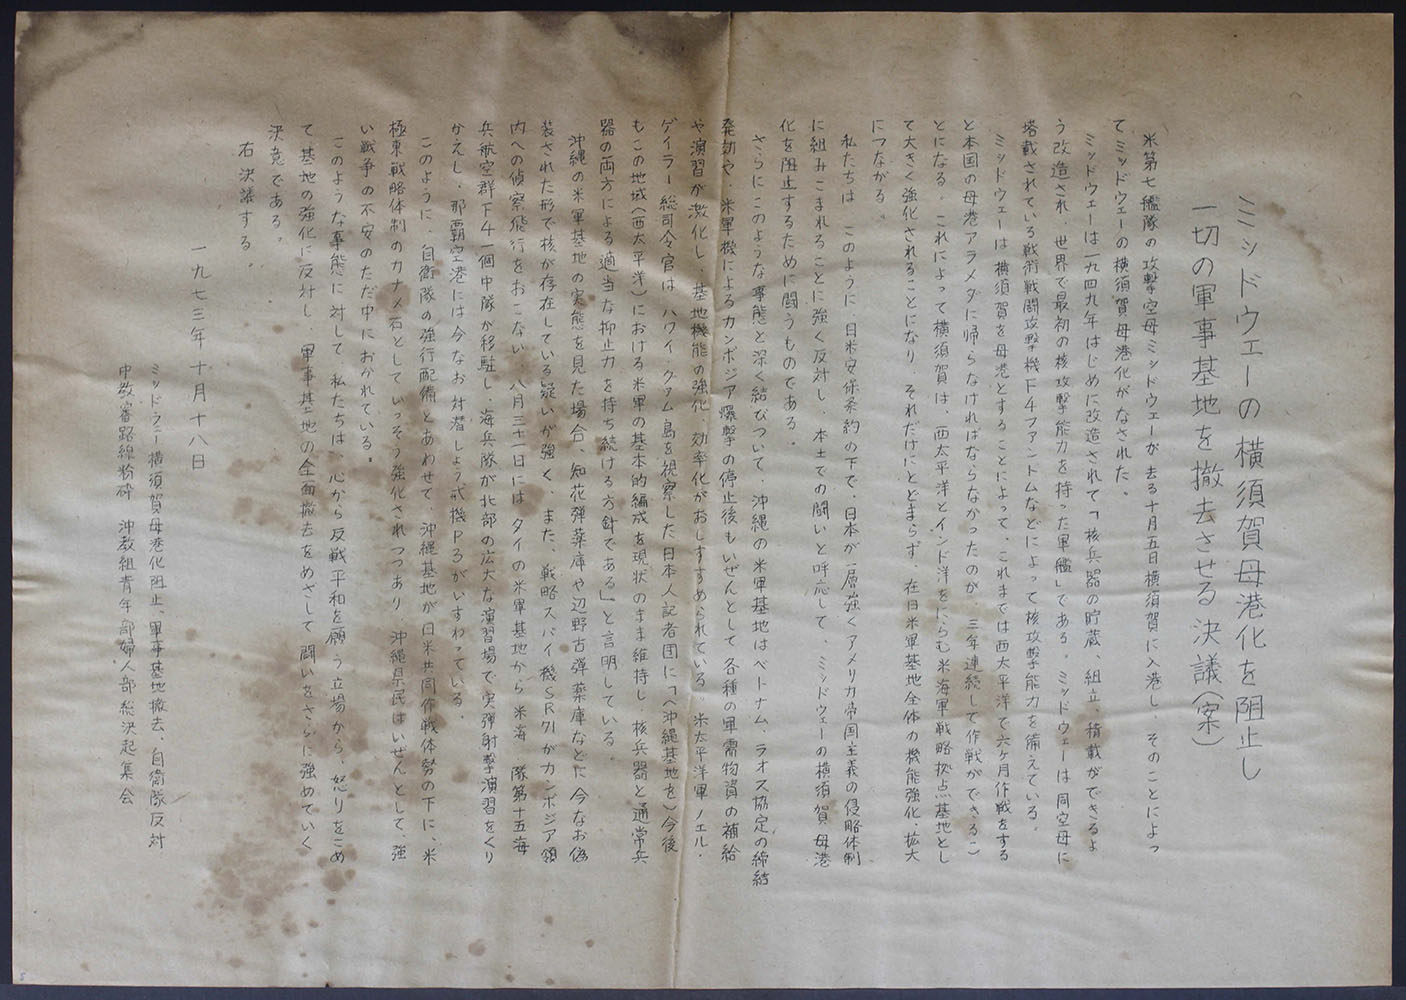 ミッドウェーの横須賀母港化を阻止し
一切の軍事基地を撤去させる決議(案)
米第七艦隊の攻撃空母ミッドウェーが去る十月五日横須賀に入港し、そのことによっ
てミッドウェーの横須賀母港化がなされた。
ミッドウェーは一九四九年はじめに改造されて「核兵器の貯蔵、組立、積載ができるよ
う改造され、世界で最初の核攻撃能力を持った軍艦」である。ミッドウェーは同空母に
塔載されている戦術戦闘攻撃機F4ファントムなどによって核攻撃能力を備えている。
ミッドウェーは横須賀を母港とすることによって、これまでは西太平洋で六ヶ月作戦をする
と本国の母港アラメダに帰らなければならなかったのが、三年連続して作戦ができるこ
とになる。これによって横須賀は、西太平洋とインド洋をにらむ米海軍戦略拠点基地とし
て大きく強化されることになり、それだけにとどまらず、在日米軍基地全体の機能強化、拡大
につながる。
私たちは、このように日米安保条約の下で、日本が一層強くアメリカ帝国主義の侵略体制
に組みこまれることに強く反対し、本土での闘いと呼応して、ミッドウェーの横須賀母港
化を阻止するために闘うものである。
さらにこのような事態と深く結びついて、沖縄の米軍基地はベトナム、ラオス協定の締結
発効や、米軍機によるカンボジア爆撃の停止後もいぜんとして各種の軍需物資の補給
や演習が激化し、基地機能の強化、効率化がおしすすめられている。米太平洋軍ノエル・
ゲイラー総司令官は、ハワイ・グァム島を視察した日本人記者団に「(沖縄基地を)今後
もこの地域(西太平洋)における米軍の基本的編成を現状のまま維持し、核兵器と通常兵
器の両方による適当な抑止力を持ち続ける方針である」と言明している
沖縄の米軍基地の実態を見た場合、知花弾薬庫や辺野古弾薬庫などに今なお偽
装された形で核が存在している疑いが強く、また、戦略スパイ機SR71がカンボジア領
内への偵察飛行をおこない、八月三十一日にはタイの米軍基地から米海 隊第十五海
兵航空群F4一個中隊が移駐し、海兵隊が北部の広大な演習場で実弾射撃演習をくり
かえし、那覇空港には今なお対潜しょう戒機P3がいすわっている。
このように、自衛隊の強行配備とあわせて、沖縄基地が日米共同作戦体勢の下に、米
極東戦略体制のカナメ石としていっそう強化されつつあり、沖縄県民はいぜんとして、強
い戦争の不安のただ中におかれている。
このような事態に対して、私たちは、心から反戦平和を願う立場から、怒りをこめ
て基地の強化に反対し、軍事基地の全面撤去をめざして、闘いをさらに強めていく
決意である。
右決議する。
一九七三年十月十八日
ミッドウェー横須賀母港化阻止、軍事基地撤去、自衛隊反対
中教審路線粉砕 沖教組青年部婦人部総決起集会